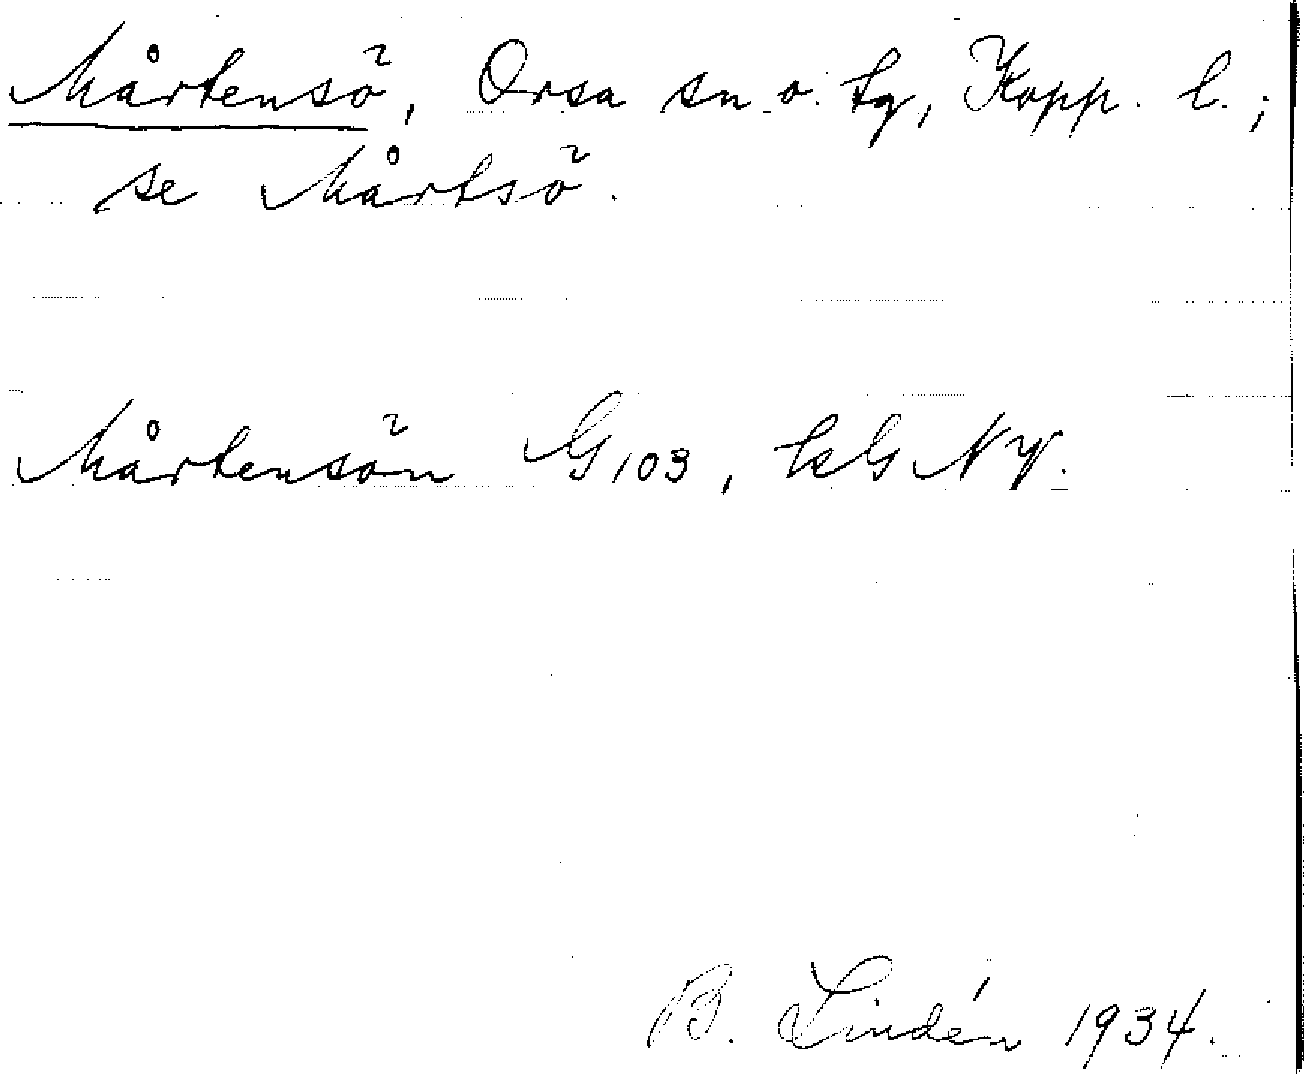 Mårtensö, Orsa sn o. tg, Kopp. l.;
se Mårtsö.
Mårtensön G 103,
B. Lindén 1934.